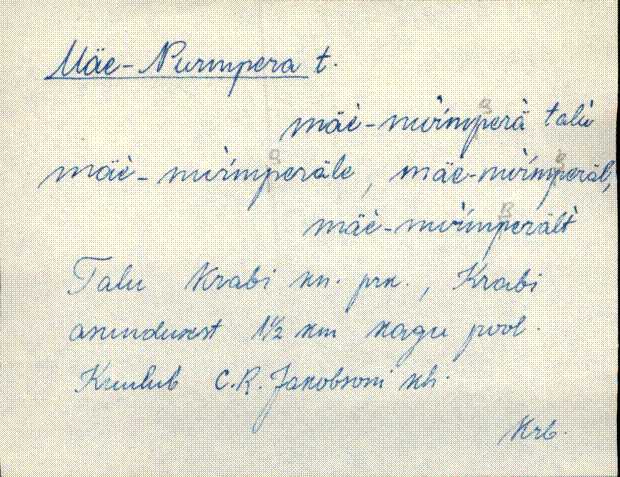 Mäe-Nurmpera t.
mäè-nuŕmperä talu
mäè-nuŕmperäle, mäe-nuŕmperäl,
mäè-nuŕmperält
Talu Krabi kn. prk., Krabi
asundusest 1½ km kagu pool.
Kuulub C.R. Jakobsoni kh.
Krb.